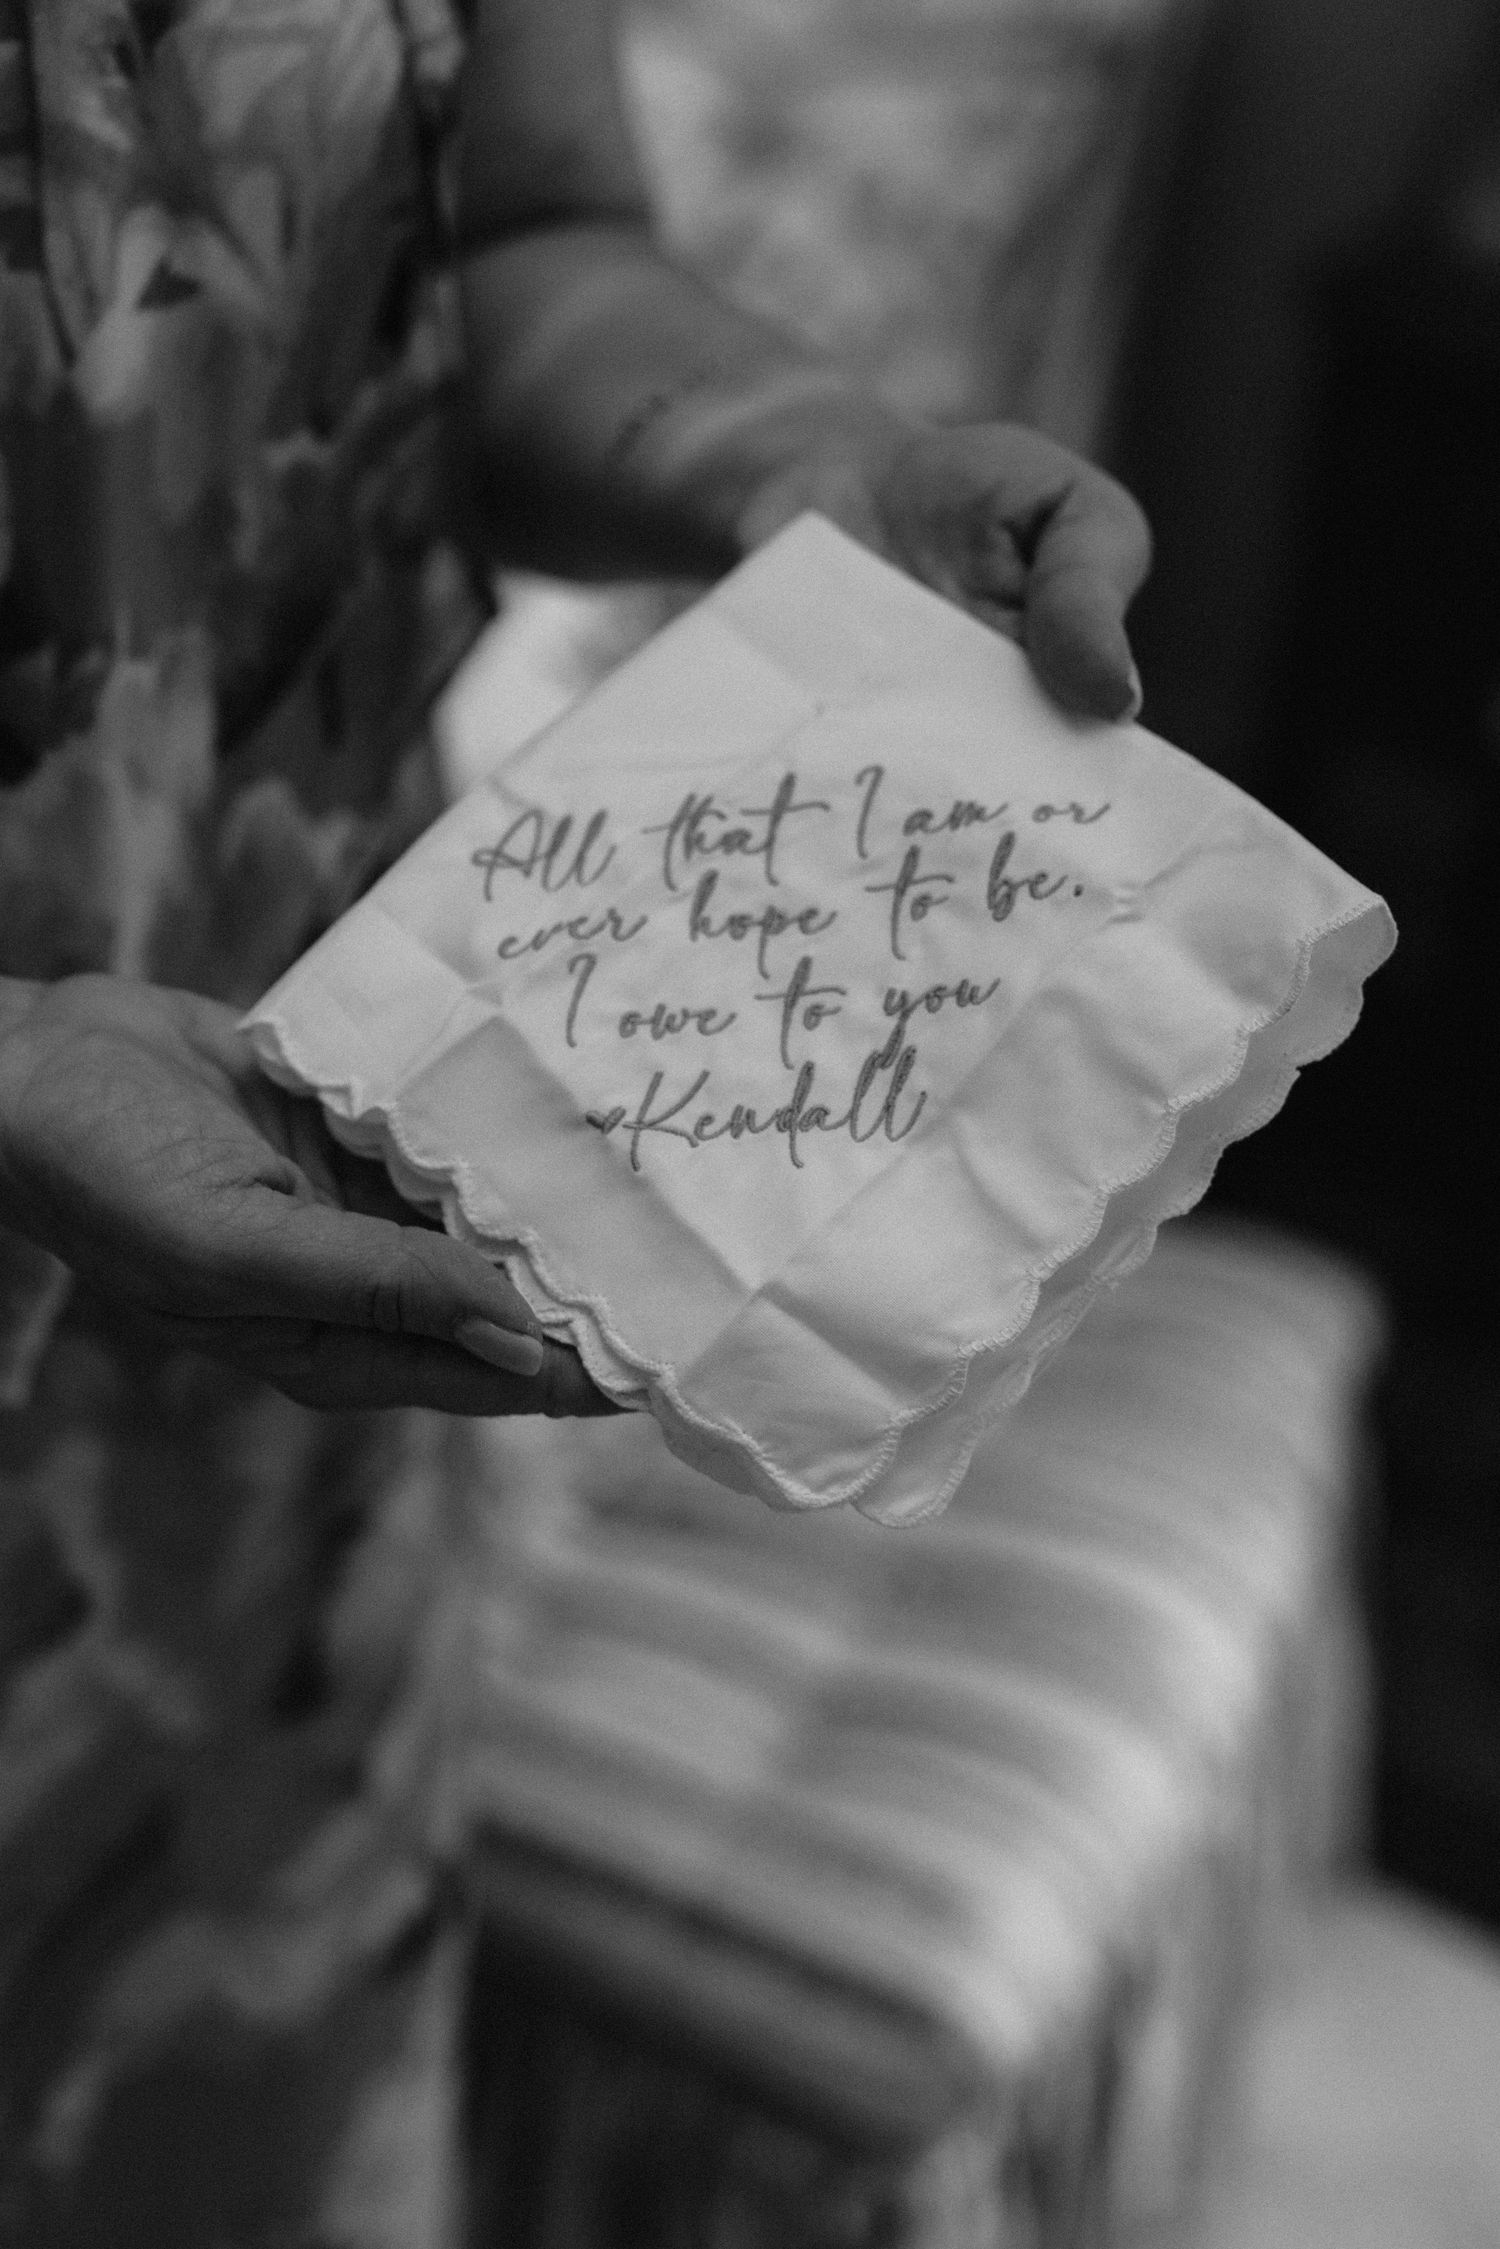 All that I am or
ever hope to be.
I owe to you
♥Kendall